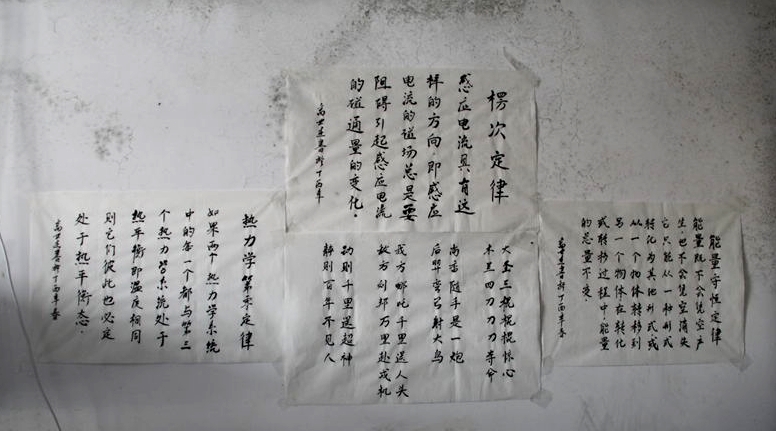 楞次定律
感应电流具有这
样的方向即感应
电流的磁场总是要
阻碍引起感应电流
的磁通量的变化。
能量守恒定律
能量既不会凭空产
生，也不会凭空消失
它只能从一种形式
转化为其他形式或
从一个物体转移到
另一个物体在转化
或转移过程中能量
的总量不变。
热力学第零定律
如果两个热力学系统
中的每一个都与第三
个热力学系统处于
热平衡即温度相同
则它们彼此也必定
处于热平衡态。
大圣三棍棍棍怀心
木兰四刀刀刀夺命
尚香随手是一炮
后羿弯弓射大鸟
我方哪吒千里送人头
敌方刘邦万里赴戎机
动则千里送超神
静则百年不见人